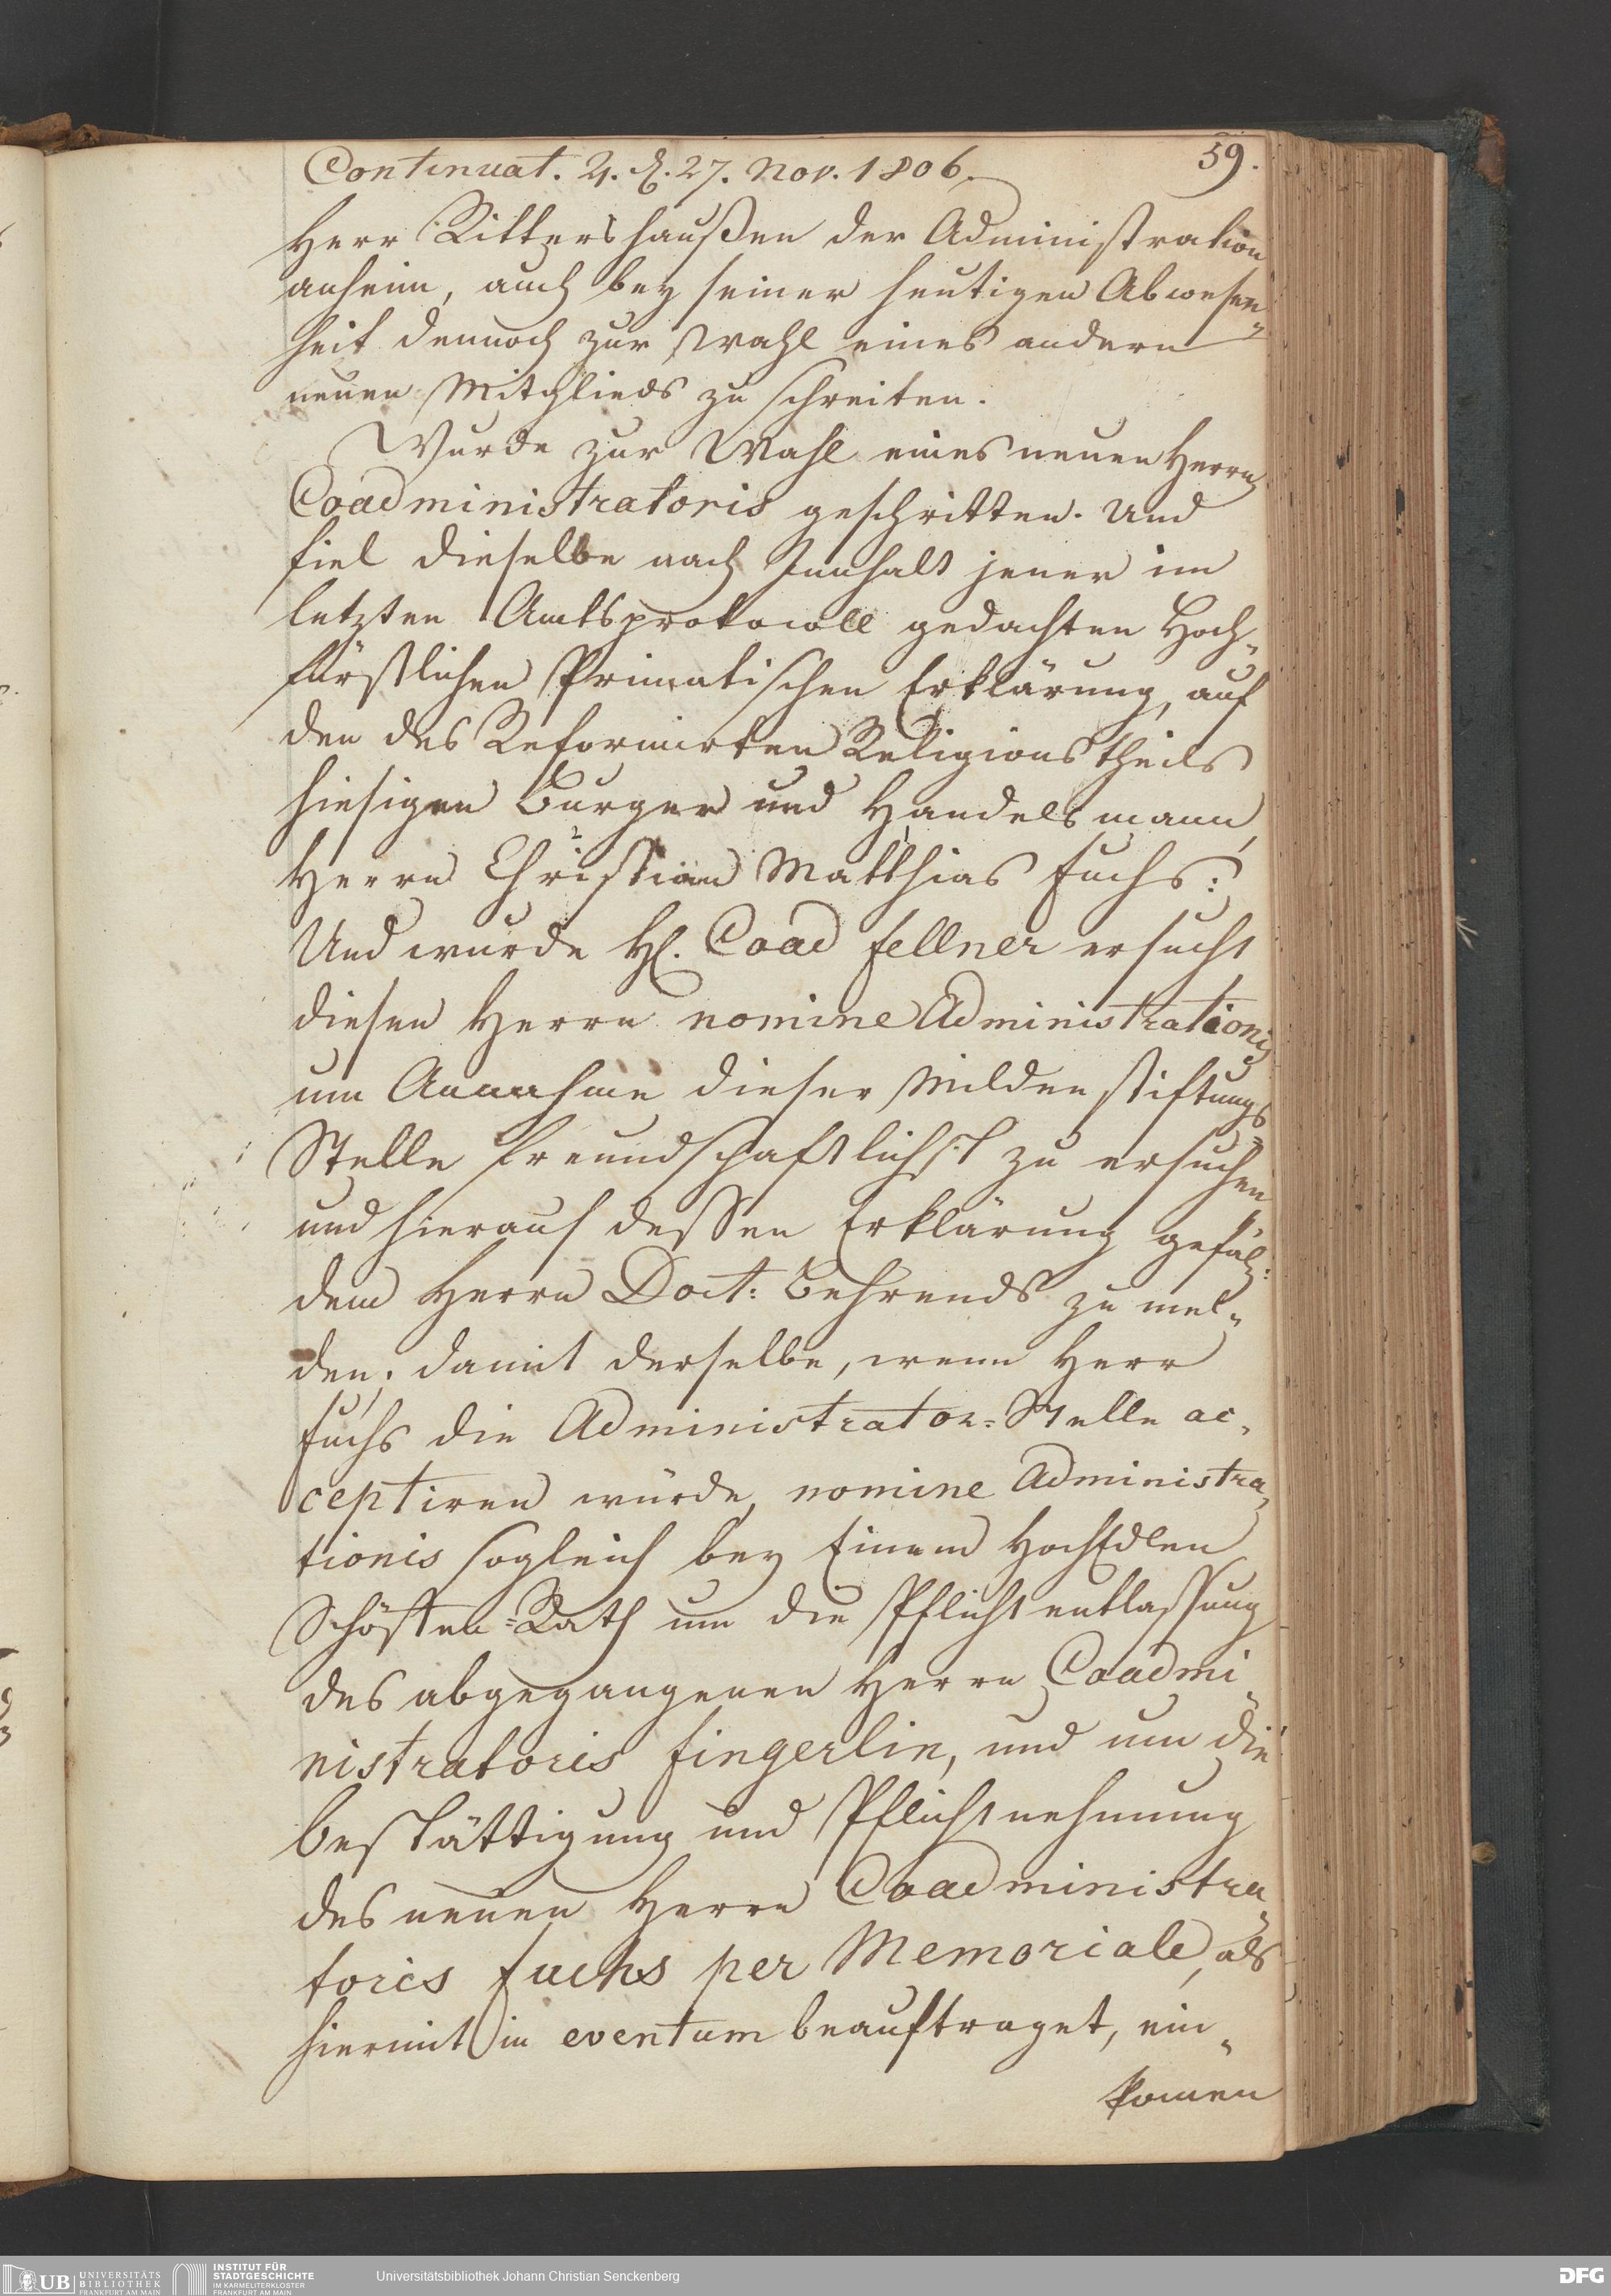 Continuat. 4. d. 27. Nov. 1806.
59.
Herr Rittershaußen der Administration
anheim, auch bey seiner heutigen Abwesen-
heit dennoch zur Wahl eines andern
neuen Mitglieds zu schreiten.
Wurde zur Wahl eines neuen Herrn
Coadministratoris geschritten. Und
fiel dieselbe nach Innhalt jener im
letzten Amtsprotocoll gedachten Hoch-
fürstlichen Primatischen Erklärung, auf
den des Reformirten Religionstheils
hiesigen Burger und Handelsmann,
Herrn Christian Matthias Fuchs:
Und wurde H. Coad Fellner ersucht
diesen Herrn nomine Administrationis
um Annahme dieser Milden Stiftungs-
Stelle freundschaftlichst zu ersuchen
und hierauf dessen Erklärung gefäl:
dem Herrn Doct: Behrends zu mel-
den; damit derselbe, wenn Herr
Fuchs die Administrator-Stelle ac-
ceptiren würde, nomine Administra-
tionis sogleich bey Einem HochEdlen
Schöffen-Rath um die Pflichtentlassung
des abgegangenen Herrn Coadmi-
nistratoris Fingerlin, und um die
Bestättigung und Pflichtnehmung
des neuen Herrn Coadministra-
toris Fuchs per Memoriale, als
hiermit in eventum beauftraget, ein-
komen
UB UNIVERSITÄTS
BIBLIOTHEK
FRANKFURT AM MAIN
INSTITUT FÜR
STADTGESCHICHTE
IM KARMELITERKLOSTER
FRANKFURT AM MAIN
Universitätsbibliothek Johann Christian Senckenberg
DFG